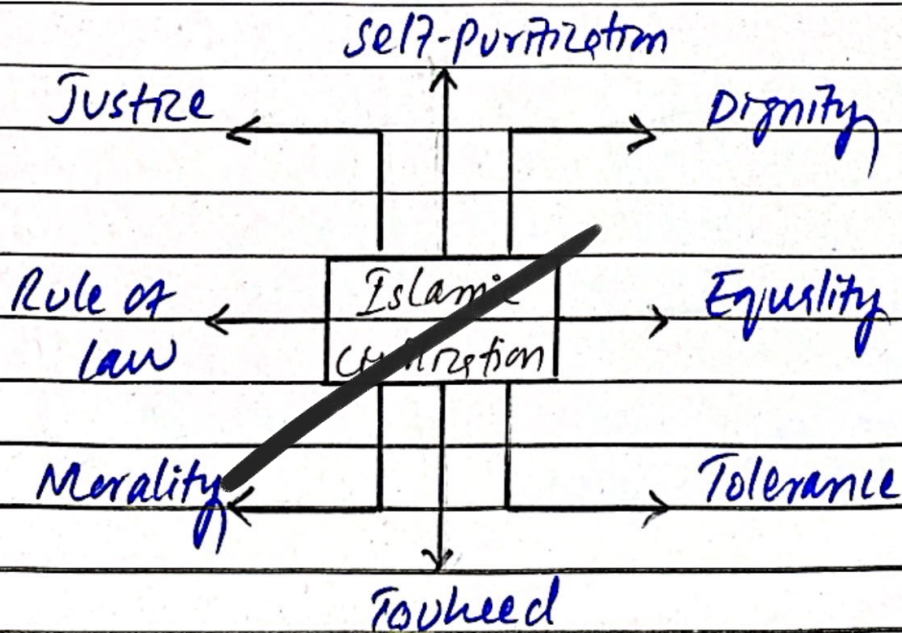 Self-Purification
Justice
Dignity
Islamic
Civilization
Rule of
law
Equality
Morality
Tolerance
Touheed